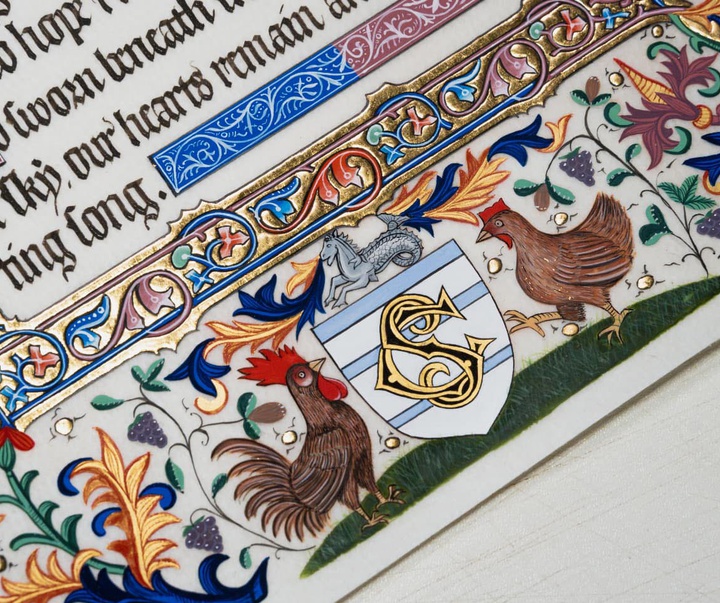 hope
sworn beneath
sky, our hearts remain
ting song.
SC